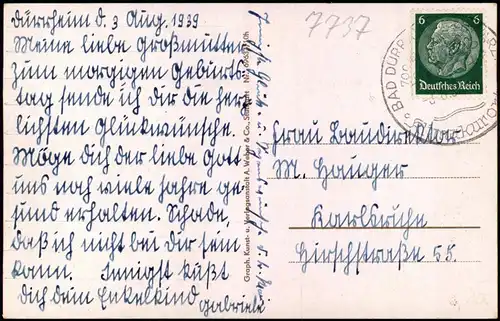 Dürrheim d. 3 Aug. 1939
Meine liebe Großmutter
zum morgigen Geburts-
tag sende ich dir die herz-
lichsten Glückwünsche.
Möge dich der liebe Gott
uns noch viele Jahre ge-
sund erhalten. Schade,
daß ich nicht bei dir sein
kann. Innigst küßt
dich dein Enkelkind
Gabriele
Graph. Kunst- u. Verlagsanstalt A. Weber & Co., Stuttgart
7737
6 6
Deutsches Reich
BAD DÜRR
Frau Baudirektor
M. Hauger
Karlsruhe
Hirschstraße 55.